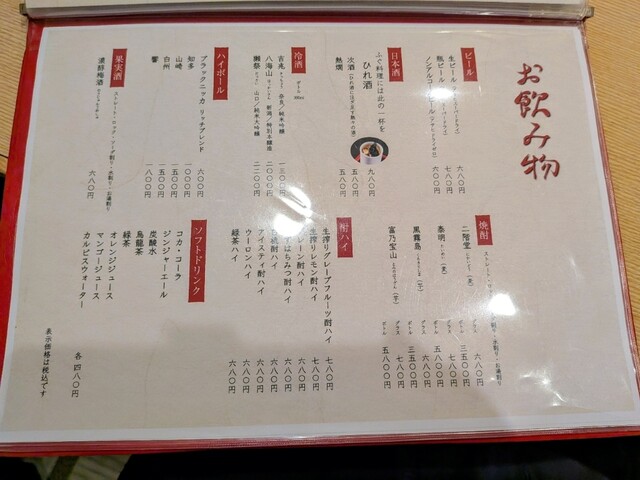 お飲み物
ビール
生ビール 六八〇円
瓶ビール 七八〇円
ノンアルコールビール 六〇〇円
日本酒
ふぐ料理には此の一杯を
ひれ酒 九八〇円
次酒 五八〇円
熱燗 五八〇円
冷酒
吉兆 奈良/純米吟醸 一三〇〇円
八海山 新潟/特別本醸造 二二〇〇円
獺祭 山口/純米大吟醸 二二〇〇円
ハイボール
ブラックニッカ リッチブレンド 六〇〇円
知多 一〇〇〇円
山崎 一五〇〇円
白州 一五〇〇円
響 一八〇〇円
果実酒
濃醇梅酒 六八〇円
焼酎
二階堂 グラス 六八〇円
ボトル 三五〇〇円
泰明 グラス 七八〇円
ボトル 五八〇〇円
黒霧島 グラス 六八〇円
ボトル 三五〇〇円
富乃宝山 グラス 七八〇円
ボトル 五八〇〇円
酎ハイ
生搾りグレープフルーツ酎ハイ 七八〇円
生搾りレモン酎ハイ 七八〇円
酎ハイ 六八〇円
はちみつ酎ハイ 六八〇円
酎ハイ 六八〇円
アイスティ酎ハイ 六八〇円
ウーロンハイ 六八〇円
緑茶ハイ 六八〇円
ソフトドリンク
コカ・コーラ
ジンジャーエール
炭酸水
烏龍茶
緑茶
オレンジジュース
マンゴージュース
カルピスウォーター
各 四八〇円
表示価格は税込です